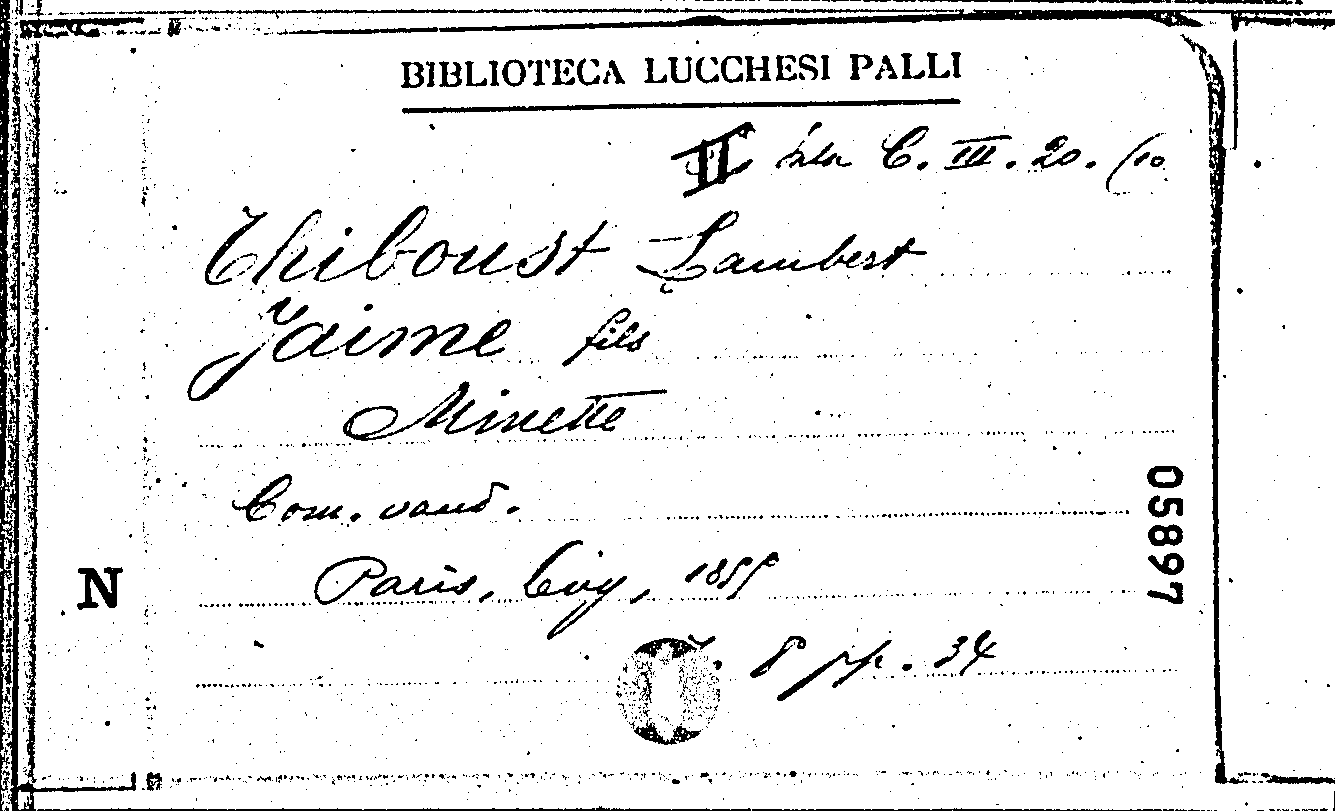 BIBLIOTECA LUCCHESI PALLI
II Sala C. III. 20. (10
Thiboust Lambert
Jaime fils
Minette
Com. vaud.
N
Paris, Lévy, 18
8 pp. 34
05897